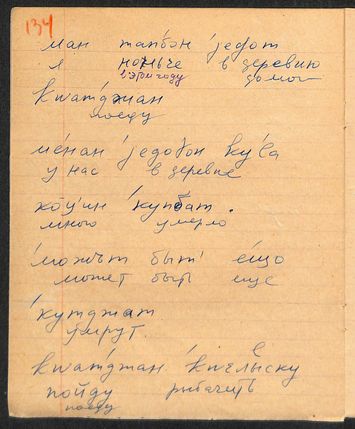 134
ман тапбон 'jедот
я ноньче в деревню
в этом году домой
кwатджан
поеду
ме́нан 'jедоɣон ку́са
у нас в деревне
коц'ин 'купбат.
много умерло
'можът быт' ещо
может быть еще
'кутджат
умрут.
кwатджан 'кwелыску
пойду рыбачить
поеду